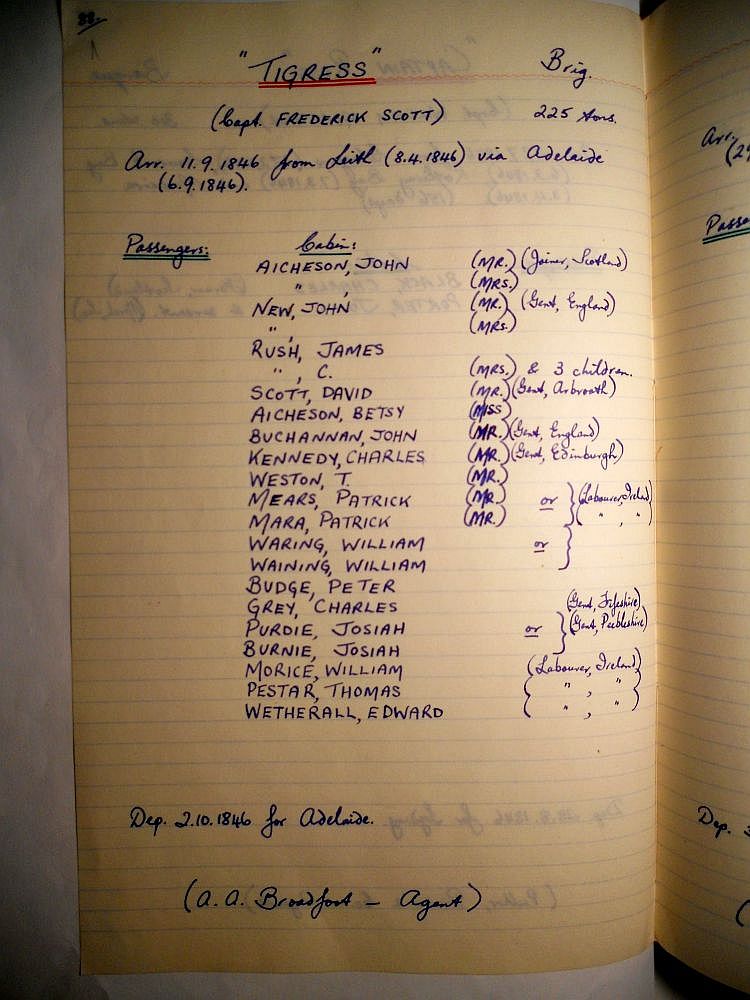 88.
"TIGRESS" Brig.
(Capt. FREDERICK SCOTT) 225 tons.
Arr. 11.9.1846 from Leith (8.4.1846) via Adelaide
(6.9.1846).
Passengers: Cabin:
AICHESON, JOHN (MR.) (Joiner, Scotland)
" , (MRS.)
NEW, JOHN (MR.) (Gent, England)
" , (MRS.)
RUSH, JAMES
" , C. (MRS.) & 3 children.
SCOTT, DAVID (MR.) (Gent, Arbroath)
AICHESON, BETSY (MISS)
BUCHANNAN, JOHN (MR.) (Gent, England)
KENNEDY, CHARLES (MR.) (Gent, Edinburgh)
WESTON, T. (MR.)
MEARS, PATRICK (MR.) or (Labourer, Ireland)
MARA, PATRICK (MR.) ( " , " )
WARING, WILLIAM or
WAINING, WILLIAM
BUDGE, PETER
GREY, CHARLES (Gent, Fifeshire)
PURDIE, JOSIAH or (Gent, Peebleshire)
BURNIE, JOSIAH
MORICE, WILLIAM (Labourer, Ireland)
PESTAR, THOMAS ( " , " )
WETHERALL, EDWARD ( " , " )
Dep. 2.10.1846 for Adelaide.
(A. A. Broadfoot - Agent)
Arr.
(29
Passe
Dep. 3
(